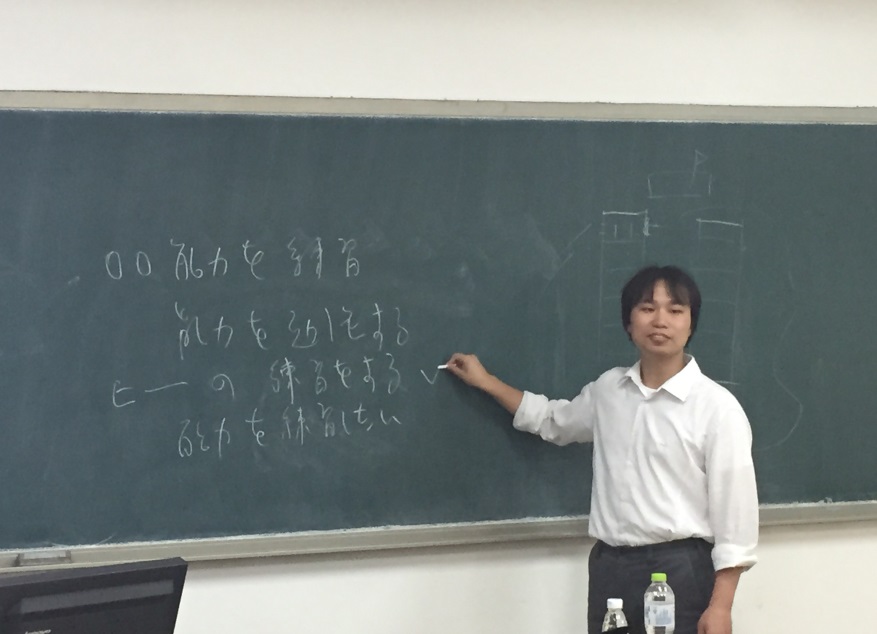 ○○能力を練習
能力を促進する
ヒーの練習をする✓
能力を練習したい
P